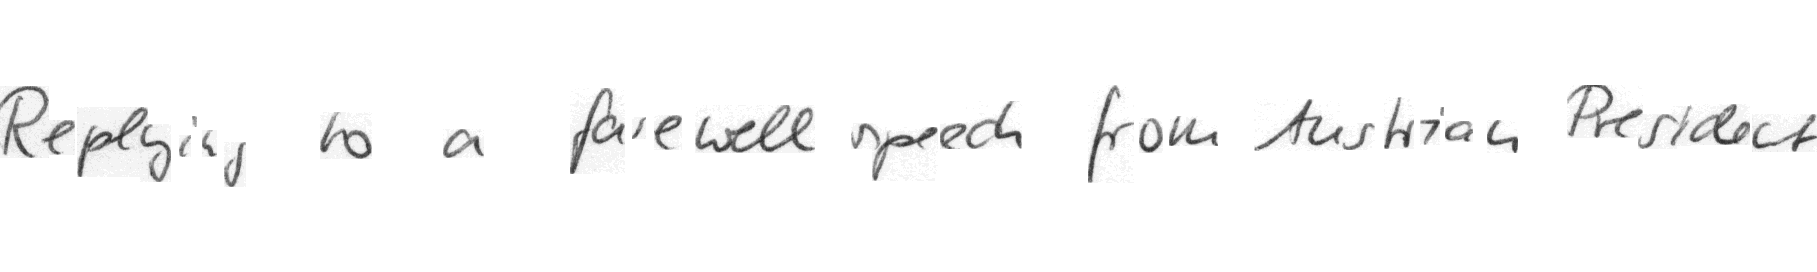 Replying to a farewell speech from Austrian President